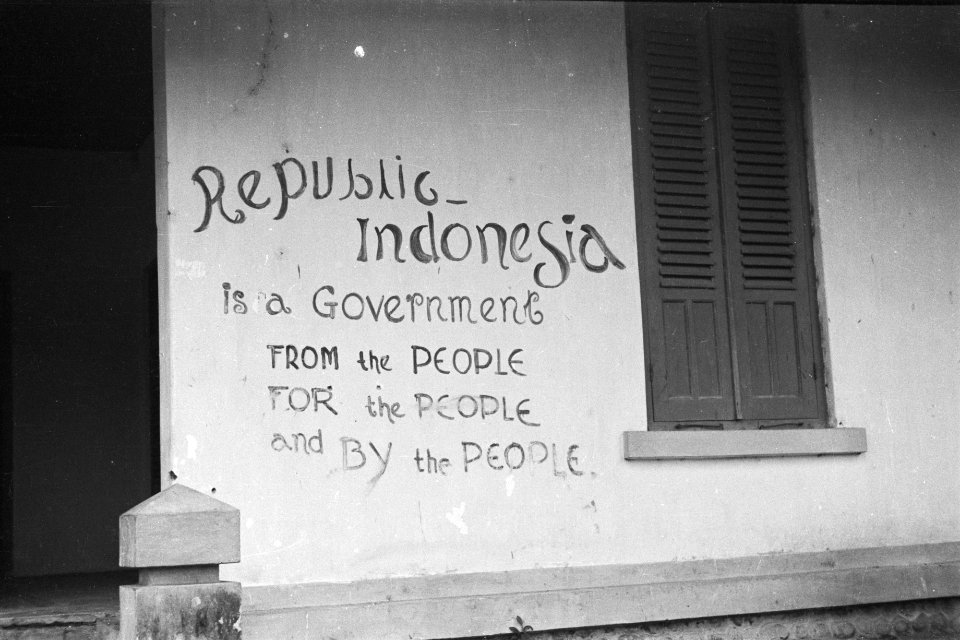 Republic_
Indonesia
is a Government
FROM the PEOPLE
FOR the PEOPLE
and BY the PEOPLE.